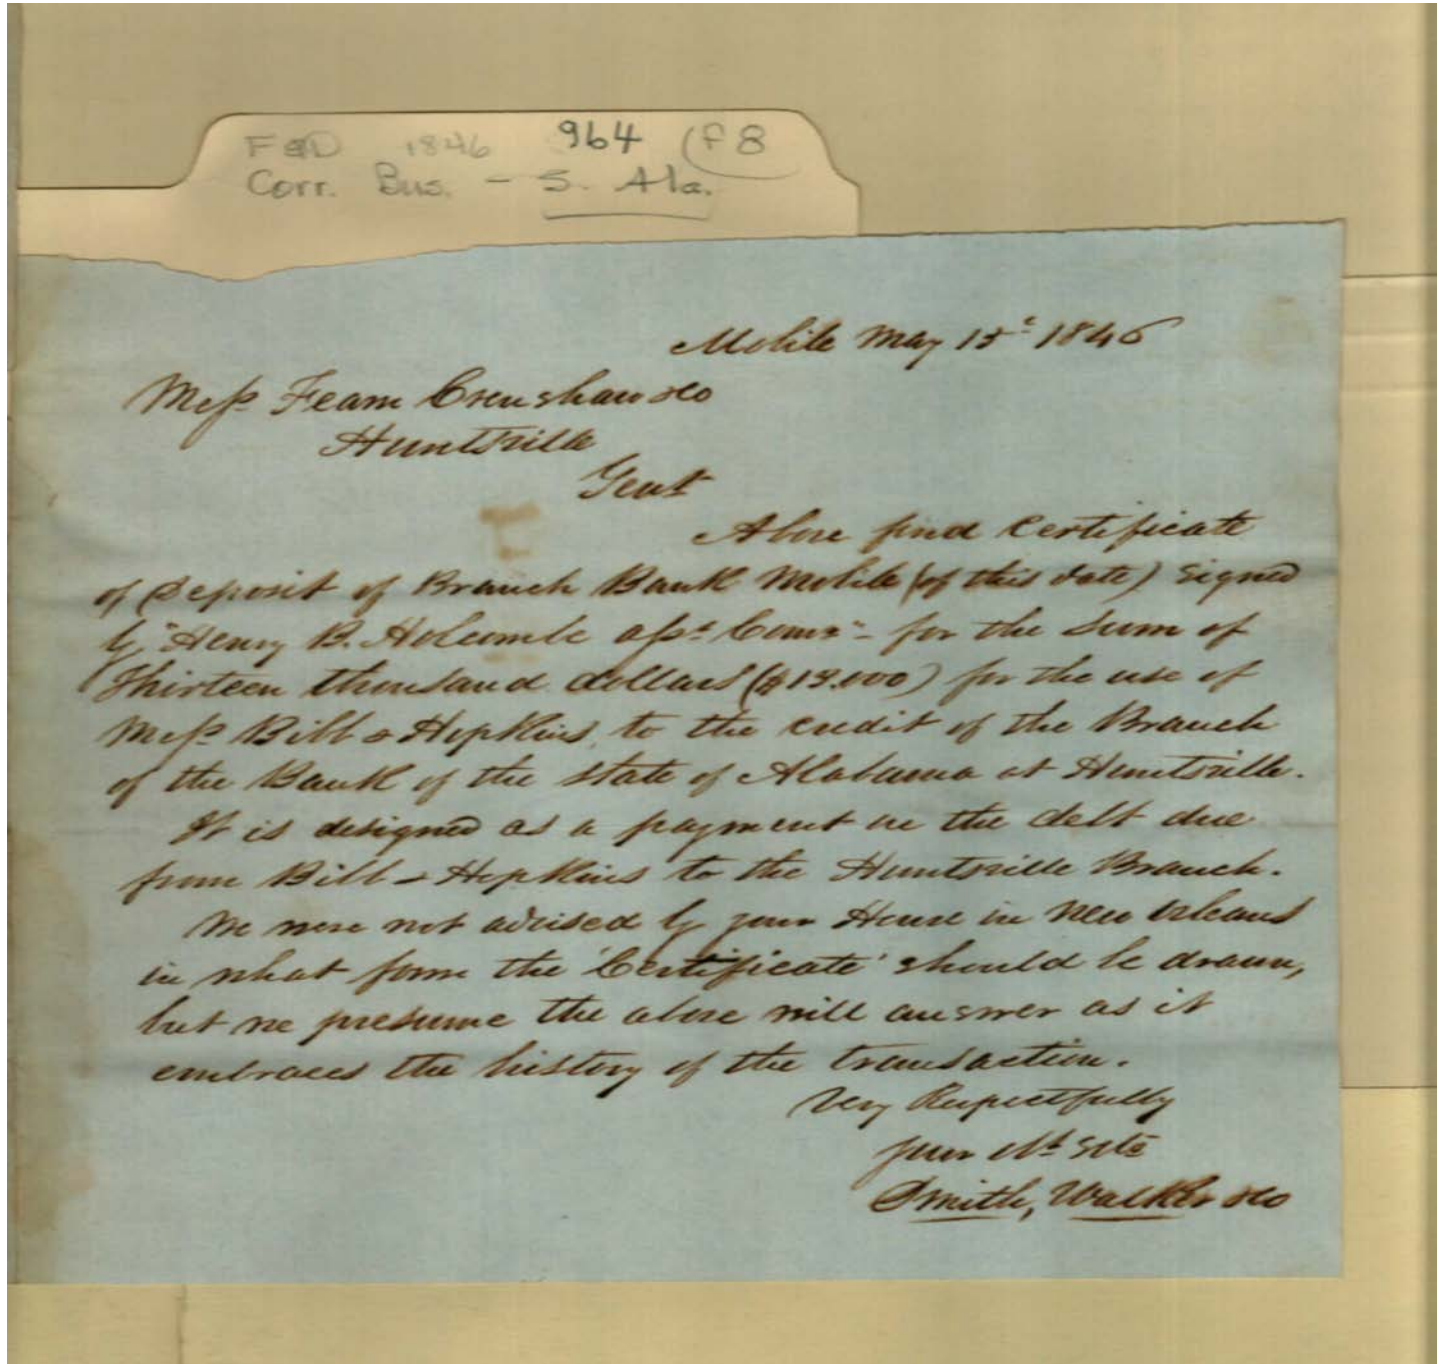 F&D 1846 964 (F8
Corr. Bus. - S. Ala.
Mobile May 15t 1846
Mess Fearn Crenshaw &Co
Huntsville
Gent
Above find Certificate
of Deposit of Branch Bank Mobile (of this date) signed
by Henry B. Holcombe asst Comr - for the sum of
Thirteen thousand dollars ($13.000) for the use of
Mess Bibb & Hopkins, to the credit of the Branch
of the Bank of the State of Alabama at Huntsville.
It is designed as a payment on the debt due
from Bibb & Hopkins to the Huntsville Branch.
We were not advised by your House in New Orleans
in what form the 'Certificate' should be drawn,
but we presume the above will answer as it
embraces the history of the transaction.
Very Respectfully
your
Smith, Walker &Co